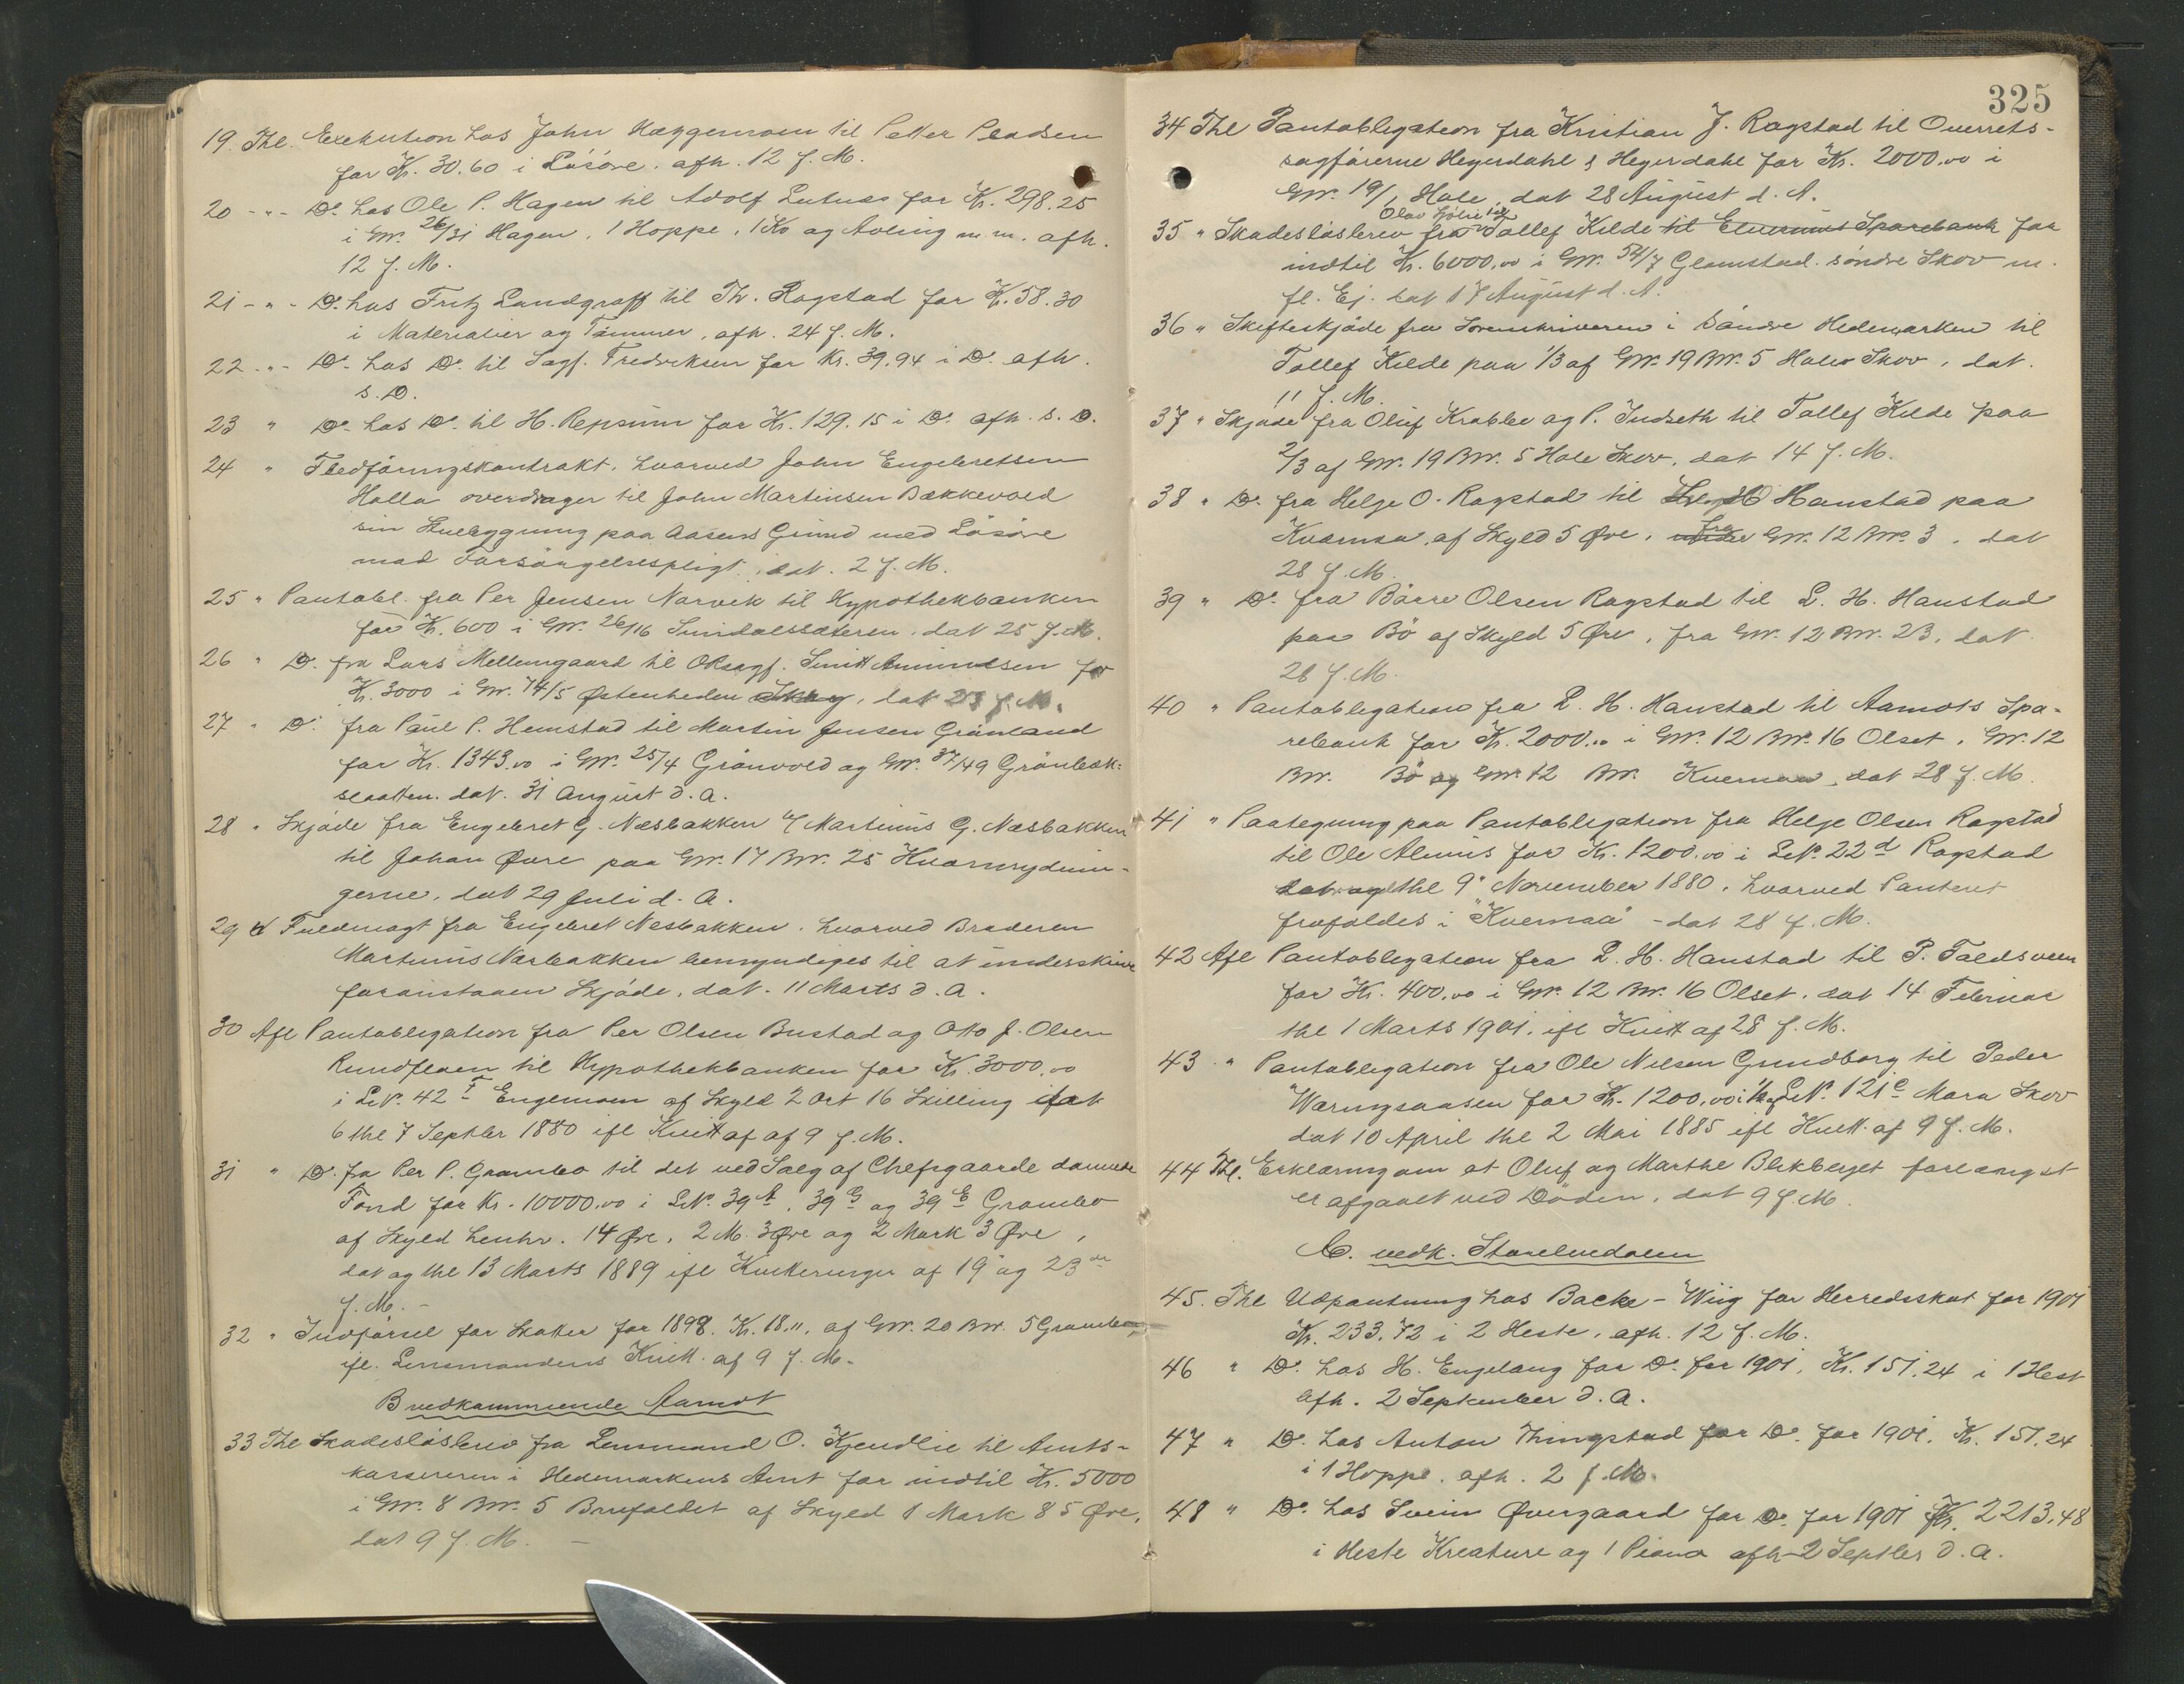 19. Thl. Exekution hos John Hæggemoen til Petter
for Kr. 30.60 i Løsøre. afh. 12 f. M.
20 - " - Do. hos Ole P. Hagen til Adolf for Kr. 298.25
i Gnr. 26/31 Hagen, 1 Hoppe, 1 Ko og Avling m. m. afh.
12 f. M.
21 - " - Do. hos Fritz Landgraff til Th. Rogstad for Kr. 58.30
i Materialier og Tømmer, afh. 24 f. M.
22 - " - Do. hos Do. til Sagf. Fredriksen for Kr. 39.94 i Do. afh.
s. D.
23 " Do. hos Do. til H. Repsum for Kr. 129.15 i Do. afh. s. D.
24 " Flødføringskontrakt, hvorved John Engebretsen
Holla overdrager til John Martinsen Bækkevold
sin Huebygning paa Aasens Grund med Løsøre
mod Forsørgelsespligt, dat. 2 f. M.
25 " Pantobl. fra Per Jensen Narvek til Hypothekbanken
for Kr. 600 i Gnr. 26/16 Sundalssæteren, dat 25 f. M.
26 " Do. fra Lars Mellemgaard til ORsagf. Smitt Amundsen for
Kr. 3000 i Gnr. 74/5 Østenheden Skog, dat 23 f. M.
27 " Do. fra Paul P. Hemstad til Martin Jensen Grønland
for Kr. 1343.00 i Gnr. 25/4 Grønvold og Gnr. 37/49 Grønbæk-
slaatten. dat. 31 August d. A.
28 " Skjøde fra Engebret G. Næsbakken v/ Martinus G. Næsbakken
til Johan Øvre paa Gnr. 17 Bnr. 25 Kværnrydnin-
gerne, dat 29 Juli d. A.
29 d Fuldmagt fra Engebret Nesbakken, hvorved Broderen
Martinus Næsbakken bemyndiges til at underskrive
foranstaaen Skjøde, dat. 11 Marts d. A.
30 Afl Pantobligation fra Per Olsen Bustad og Otto J. Olsen
Rundfloen til Hypothekbanken for Kr. 3000.00
i LNr. 42 f Engemoen af Skyld 2 Ort 16 Skilling dat
6 thl 7 Septbr 1880 ifl Kvitt af af 9 f. M.
31 " Do. fra Per P. Grambo til det ved Salg af Chefsgaarde dannede
Fond for Kr. 10000.00 i LNr. 39 f, 39 g og 39 E Grambo
af Skyld henhv. 14 Øre, 2 M. 3 Øre og 2 Mark 3 Øre,
dat og thl 13 Marts 1889 ifl Kvitteringer af 19 og 23 de
f. M. -
32 " Indførsel for Skatter for 1898. Kr. 18.11, af Gnr. 20 Bnr. 5 Grambo,
ifl. Lensmandens Kvitt. af 9 f. M.
B vedkommende Aamot
33 Thl Skadesløsbrev fra Lensmand O. Kjendlie til Amts-
kassereren i Hedemarkens Amt for indtil Kr. 5000
i Gnr. 8 Bnr. 5 Brufaldet af Skyld 1 Mark 85 Øre,
dat 9 f. M. -
325
34 Thl Pantobligation fra Kristian J. Rogstad til Overrets-
sagførerne Heyerdahl & Heyerdahl for Kr. 2000.00 i
Gnr. 19/1 Hole, dat 28 August d. A.
35 " Skadesløsbrev fra Tollef Kilde til Elverums Sparebank for
indtil Kr. 6000.00 i Gnr. 54/7 Glomstad søndre Skov m.
fl. Ej. dat 17 August d. A.
36 " Skifteskjøde fra Sorenskriveren i Søndre Hedemarken til
Tollef Kilde paa 1/3 af Gnr. 19 Bnr. 5 Holes Skov, dat.
11 f. M.
37 " Skjøde fra Oluf Krabbe og P. Indseth til Tollef Kilde paa
2/3 af Gnr. 19 Bnr. 5 Hole Skov, dat 14 f. M.
38 " Do. fra Helge O. Rogstad til L. H. Hanstad paa
Kværnaa, af Skyld 5 Øre, fra Gnr. 12 Bnr. 3, dat
28 f. M.
39 " Do. fra Børre Olsen Rogstad til L. H. Hanstad
paa Bø af Skyld 5 Øre, fra Gnr. 12 Bnr. 23, dat
28 f. M.
40 " Pantobligation fra L. H. Hanstad til Aamots Spa-
rebank for Kr. 2000.00 i Gnr. 12 Bnr. 16 Olset, Gnr. 12
Bnr. Bø og Gnr. 12 Bnr. Kvernaa, dat 28 f. M.
41 " Paategning paa Pantobligation fra Helge Olsen Rogstad
til Ole Alnæs for Kr. 1200.00 i LNr. 22 d Rogstad
dat og thl 9 November 1880, hvorved Pantet
frafaldes i "Kvernaa" - dat 28 f. M.
42 Afl Pantobligation fra L. H. Hanstad til P. Foldsveen
for Kr. 400.00 i Gnr. 12 Bnr. 16 Olset, dat 14 Februar
thl 1 Marts 1901, ifl Kvitt af 28 f. M.
43 " Pantobligation fra Ole Nilsen Grundborg til Peder
Væringsaasen for Kr. 1200.00 i 1/2 af LNr. 121 c Mora Skov
dat 10 April thl 2 Mai 1885 ifl Kvitt. af 9 f. M.
44 Thl. Erklæring om at Oluf og Marthe Blikberget forlængst
er afgaaet ved Døden, dat 9 f. M.
C. vedk. Storelvedalen
45. Thl Udpantning hos Backe-Wiig for Herredsskat for 1901
Kr. 233.72 i 2 Heste, afh. 12 f. M.
46 " Do. hos H. Engelaug for Do. for 1901, Kr. 151.24 i 1 Hest
afh. 2 September d. A.
47 " Do. hos Anton Thingstad for Do. for 1901. Kr. 151.24
i 1 Hoppe, afh. 2 f. M.
48 " Do. hos Svein Øvergaard for Do. for 1901 Kr. 2213.48
i Heste Kreature og 1 Piano afh - 2 Septbr d. A.